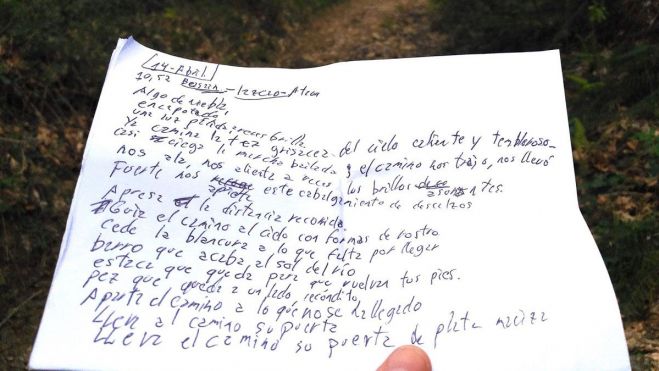 14-Abril
10,52 Beasain-Izazpo-Atem
Algo de niebla,
encapotado,
una luz pálida a veces brilla
Ya camina la tez grisácea del cielo caliente y tembloroso
casi ciega la marcha bailada y el camino nos trajo, nos llevó
nos ata, nos alienta a veces los brillos
Fuerte nos aprieta este cabalgamiento de descalzos
Apresa la distancia recorrida.
Guía el camino al cielo con formas de rostro
cede la blancura a lo que falta por llegar
barro que acaba al sol del río
estaca que queda para que vuelvan tus pies.
pez que queda a un lado recóndito
Aparta el camino a lo que no se ha llegado
Lleva al camino su puerta
Lleva el camino su puerta de plata maciza